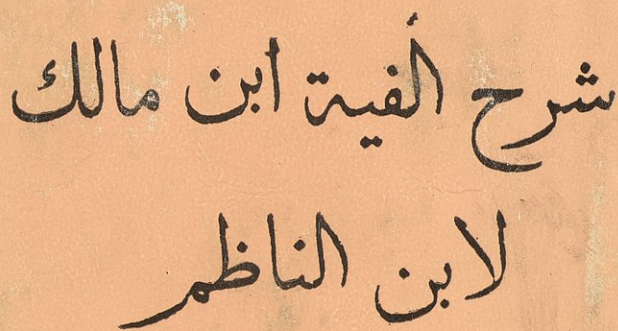 شرح ألفية ابن مالك
لابن الناظم